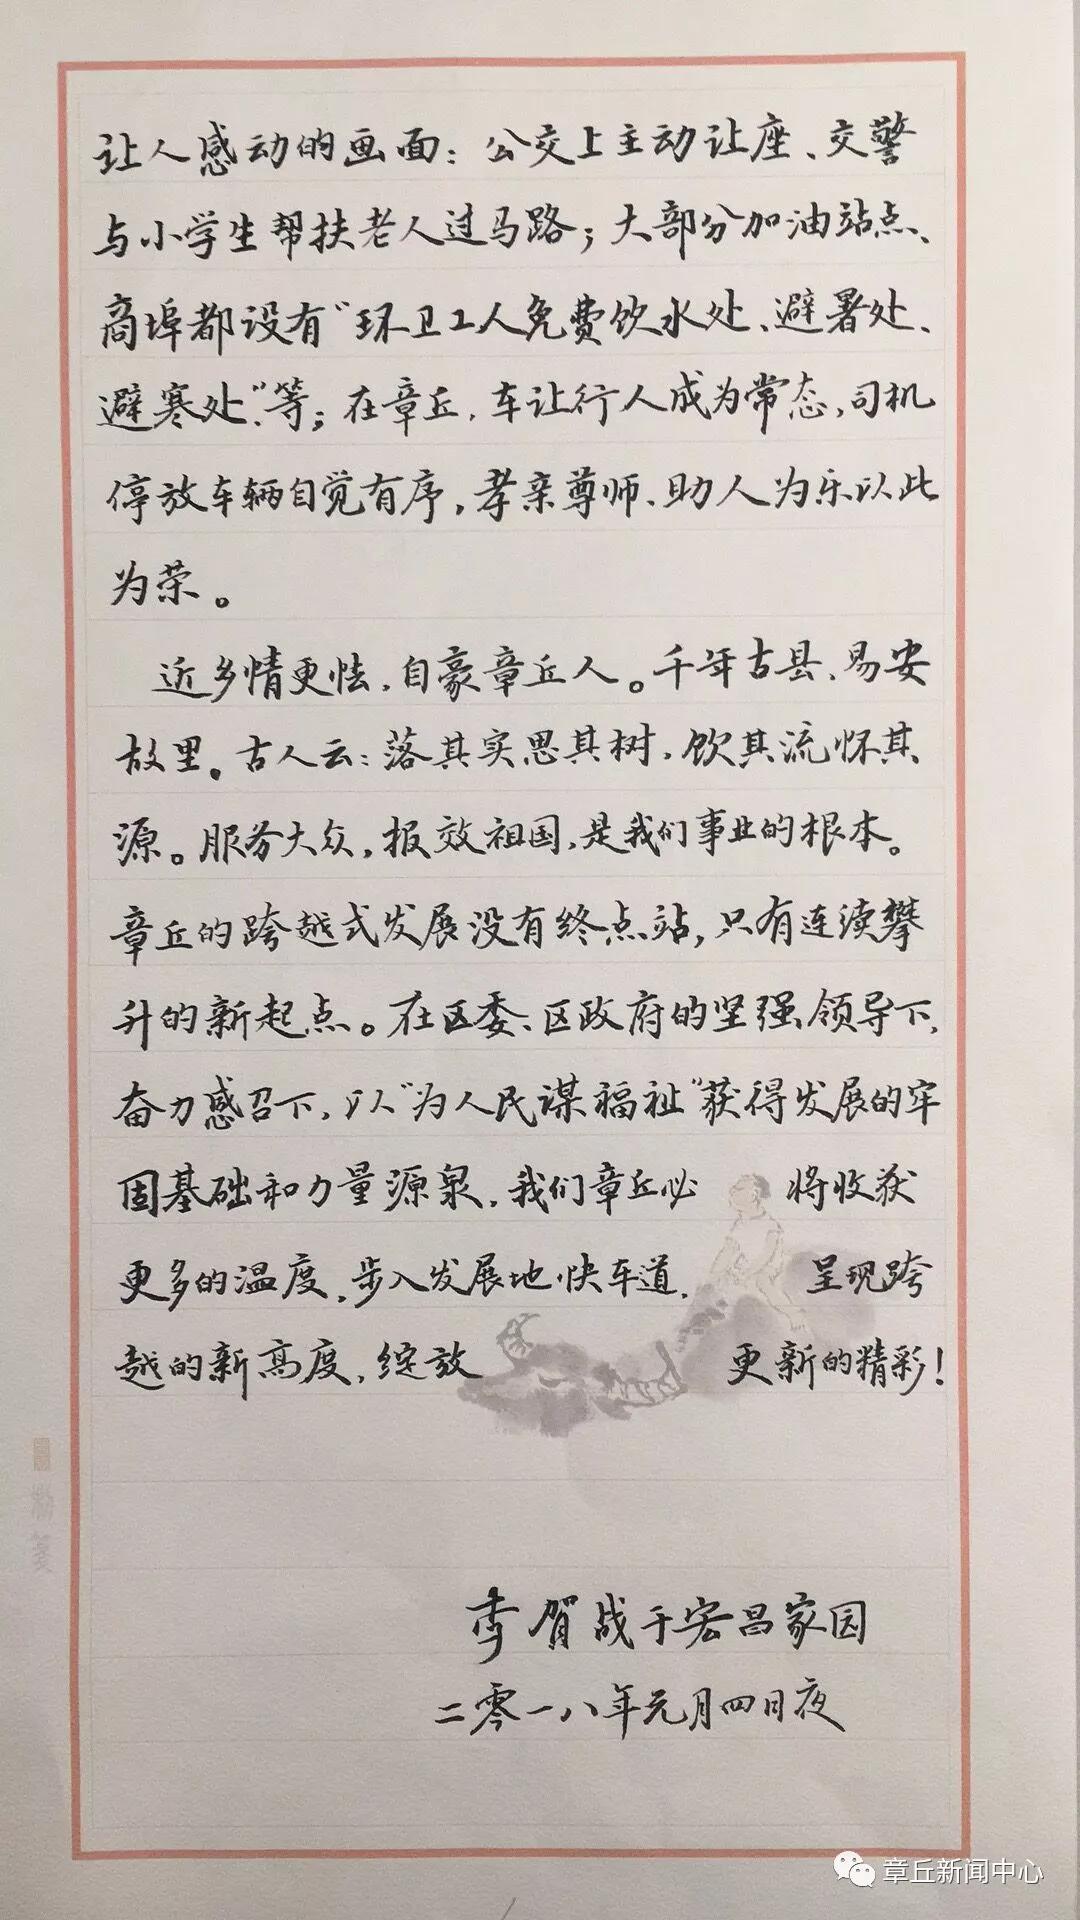 让人感动的画面：公交上主动让座、交警
与小学生帮扶老人过马路；大部分加油站点、
商埠都设有“环卫工人免费饮水处、避暑处、
避寒处”等；在章丘，车让行人成为常态，司机
停放车辆自觉有序，孝亲尊师、助人为乐以此
为荣。
近乡情更怯，自豪章丘人。千年古县、易安
故里。古人云：落其实思其树，饮其流怀其
源。服务大众，报效祖国，是我们事业的根本。
章丘的跨越式发展没有终点站，只有连续攀
升的新起点。在区委、区政府的坚强领导下，
奋力感召下，以“为人民谋福祉”获得发展的牢
固基础和力量源泉，我们章丘必将收获
更多的温度，步入发展地快车道，呈现跨
越的新高度，绽放更新的精彩！
李贺战于宏昌家园
二零一八年元月四日夜
章丘新闻中心